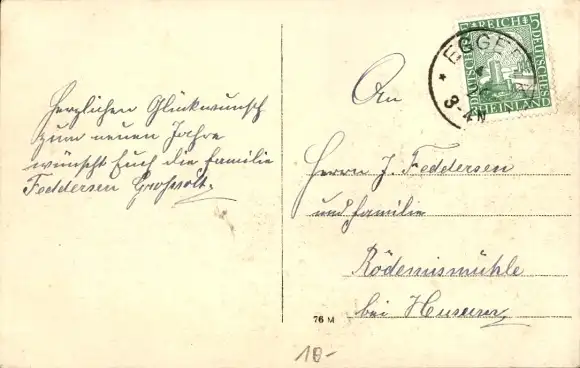 Herzlichen Glückwunsch
zum neuen Jahre
wünscht Euch die Familie
Feddersen Großsolt.
An
Herrn J. Feddersen
und Familie
Rödemismühle
bei Husum
76 M
10-
DEUTSCHES REICH 5
DEUTSCHES
RHEINLAND
EGGE
3-4 N